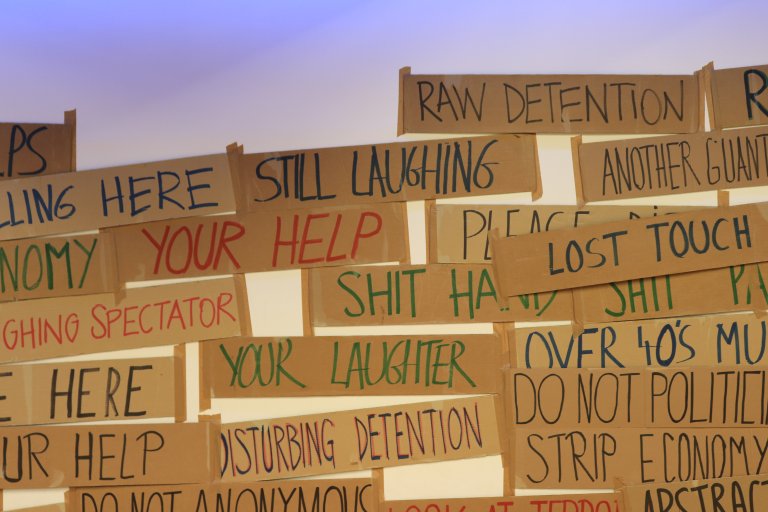 RAW DETENTION
PS
STILL LAUGHING
ANOTHER GUANT
LLING HERE
YOUR HELP
LOST TOUCH
NOMY
SHIT
SHIT
GHING SPECTATOR
OVER 40'S MU
YOUR LAUGHTER
E HERE
DO NOT POLITICI
UR HELP
DISTURBING DETENTION
STRIP ECONOMY
DO NOT ANONYMOUS
LOOK AT
ABSTRACT